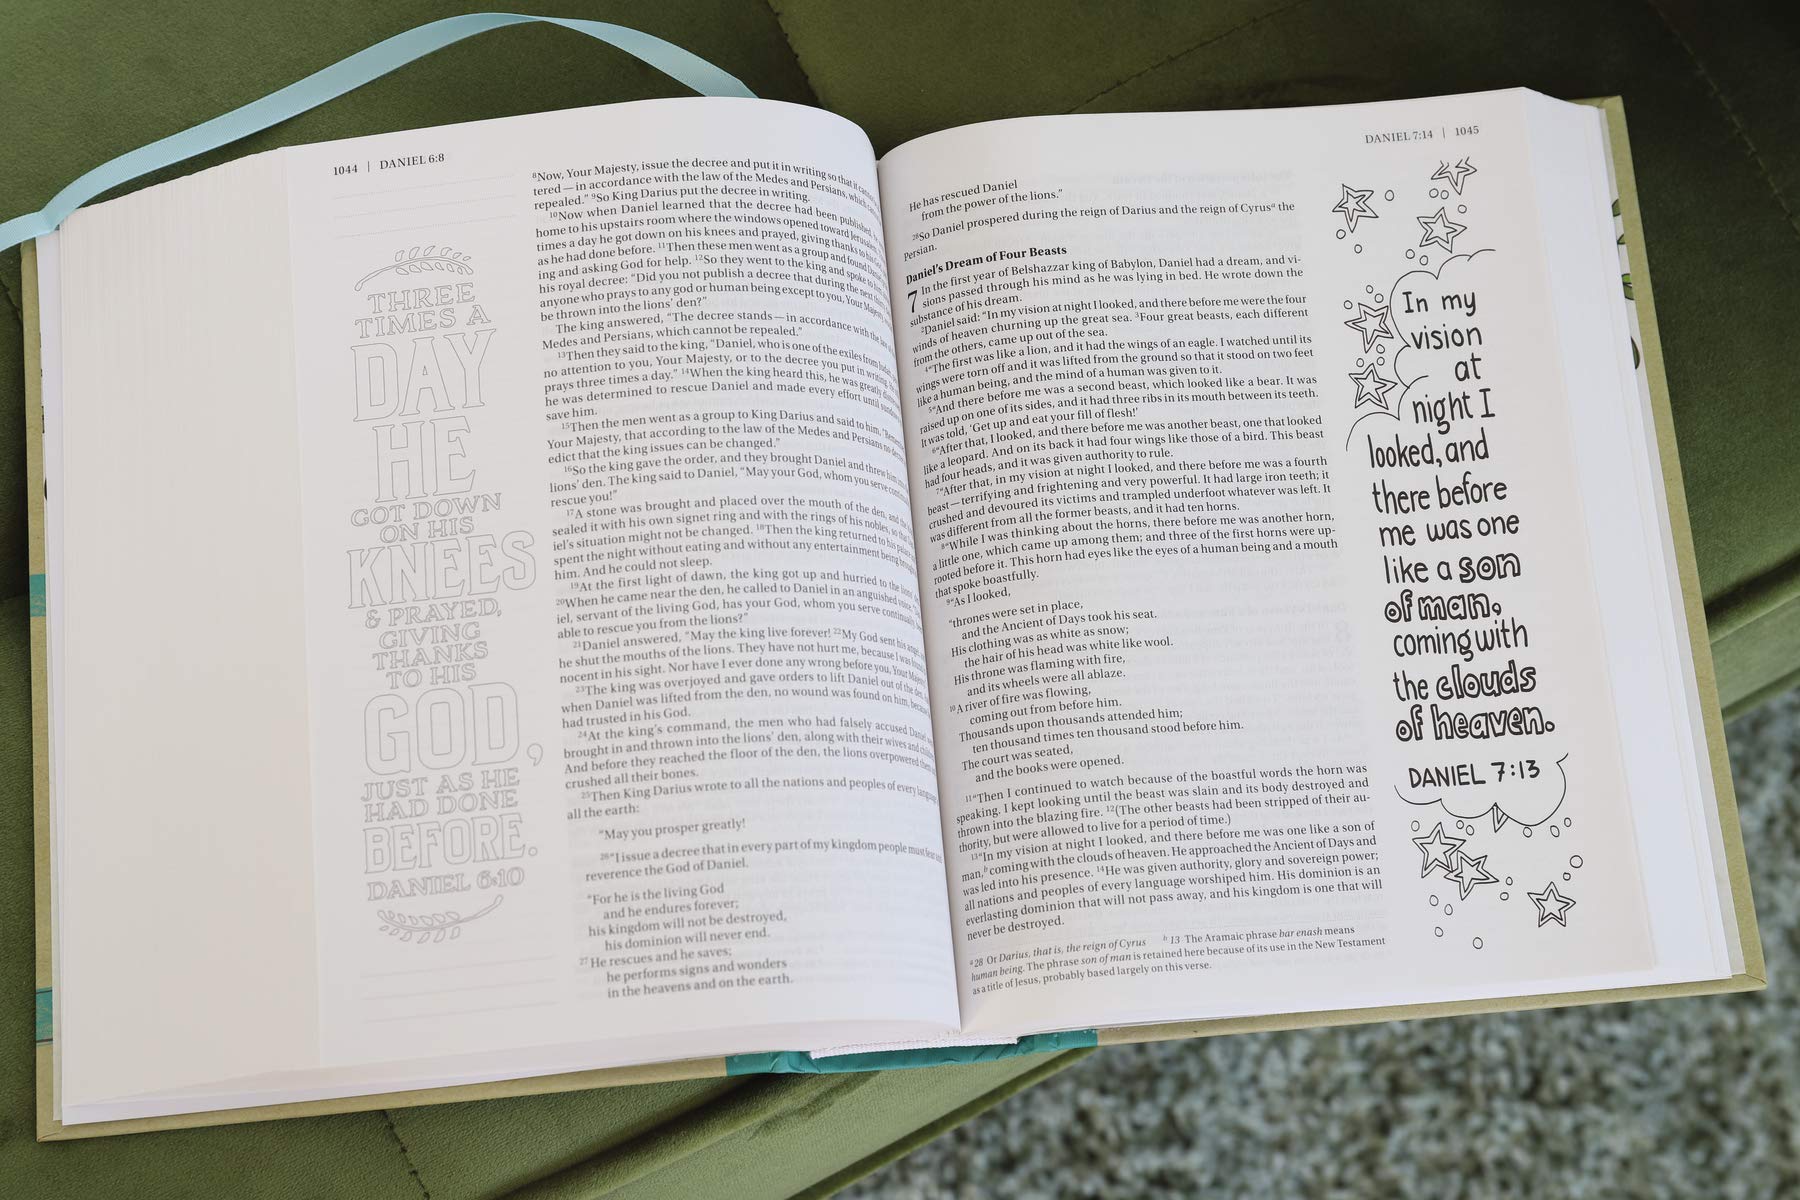 1044 | DANIEL 6:8
THREE
TIMES A
DAY
HE
GOT DOWN
ON HIS
KNEES
& PRAYED,
GIVING
THANKS
TO HIS
GOD,
JUST AS HE
HAD DONE
BEFORE.
DANIEL 6:10
⁸Now, Your Majesty, issue the decree and put it in writing so that it
tered — in accordance with the law of the Medes and Persians, which
repealed.” ⁹So King Darius put the decree in writing.
¹⁰Now when Daniel learned that the decree had been published,
home to his upstairs room where the windows opened toward
times a day he got down on his knees and prayed, giving thanks to his
as he had done before. ¹¹Then these men went as a group and found
ing and asking God for help. ¹²So they went to the king and spoke to
his royal decree: “Did you not publish a decree that during the next
anyone who prays to any god or human being except to you, Your Majesty,
be thrown into the lions’ den?”
The king answered, “The decree stands — in accordance with the law of
Medes and Persians, which cannot be repealed.”
¹³Then they said to the king, “Daniel, who is one of the exiles from
no attention to you, Your Majesty, or to the decree you put in writing.
prays three times a day.” ¹⁴When the king heard this, he was greatly
he was determined to rescue Daniel and made every effort until
save him.
¹⁵Then the men went as a group to King Darius and said to him,
Your Majesty, that according to the law of the Medes and Persians no
edict that the king issues can be changed.”
¹⁶So the king gave the order, and they brought Daniel and threw him
lions’ den. The king said to Daniel, “May your God, whom you serve
rescue you!”
¹⁷A stone was brought and placed over the mouth of the den, and the
sealed it with his own signet ring and with the rings of his nobles, so that
iel’s situation might not be changed. ¹⁸Then the king returned to his
spent the night without eating and without any entertainment being
him. And he could not sleep.
¹⁹At the first light of dawn, the king got up and hurried to the lions’
²⁰When he came near the den, he called to Daniel in an anguished voice,
iel, servant of the living God, has your God, whom you serve continually,
able to rescue you from the lions?”
²¹Daniel answered, “May the king live forever! ²²My God sent his angel,
he shut the mouths of the lions. They have not hurt me, because I was
nocent in his sight. Nor have I ever done any wrong before you, Your
²³The king was overjoyed and gave orders to lift Daniel out of the den.
when Daniel was lifted from the den, no wound was found on him, because
had trusted in his God.
²⁴At the king’s command, the men who had falsely accused Daniel
brought in and thrown into the lions’ den, along with their wives and
And before they reached the floor of the den, the lions overpowered
crushed all their bones.
²⁵Then King Darius wrote to all the nations and peoples of every
all the earth:
“May you prosper greatly!
²⁶“I issue a decree that in every part of my kingdom people must fear and
reverence the God of Daniel.
“For he is the living God
and he endures forever;
his kingdom will not be destroyed,
his dominion will never end.
²⁷He rescues and he saves;
he performs signs and wonders
in the heavens and on the earth.
DANIEL 7:14 | 1045
He has rescued Daniel
from the power of the lions.”
²⁸So Daniel prospered during the reign of Darius and the reign of Cyrusᵃ the
Persian.
Daniel’s Dream of Four Beasts
7 In the first year of Belshazzar king of Babylon, Daniel had a dream, and vi-
sions passed through his mind as he was lying in bed. He wrote down the
substance of his dream.
²Daniel said: “In my vision at night I looked, and there before me were the four
winds of heaven churning up the great sea. ³Four great beasts, each different
from the others, came up out of the sea.
⁴“The first was like a lion, and it had the wings of an eagle. I watched until its
wings were torn off and it was lifted from the ground so that it stood on two feet
like a human being, and the mind of a human was given to it.
⁵“And there before me was a second beast, which looked like a bear. It was
raised up on one of its sides, and it had three ribs in its mouth between its teeth.
It was told, ‘Get up and eat your fill of flesh!’
⁶“After that, I looked, and there before me was another beast, one that looked
like a leopard. And on its back it had four wings like those of a bird. This beast
had four heads, and it was given authority to rule.
⁷“After that, in my vision at night I looked, and there before me was a fourth
beast — terrifying and frightening and very powerful. It had large iron teeth; it
crushed and devoured its victims and trampled underfoot whatever was left. It
was different from all the former beasts, and it had ten horns.
⁸“While I was thinking about the horns, there before me was another horn,
a little one, which came up among them; and three of the first horns were up-
rooted before it. This horn had eyes like the eyes of a human being and a mouth
that spoke boastfully.
⁹“As I looked,
“thrones were set in place,
and the Ancient of Days took his seat.
His clothing was as white as snow;
the hair of his head was white like wool.
His throne was flaming with fire,
and its wheels were all ablaze.
¹⁰A river of fire was flowing,
coming out from before him.
Thousands upon thousands attended him;
ten thousand times ten thousand stood before him.
The court was seated,
and the books were opened.
¹¹“Then I continued to watch because of the boastful words the horn was
speaking. I kept looking until the beast was slain and its body destroyed and
thrown into the blazing fire. ¹²(The other beasts had been stripped of their au-
thority, but were allowed to live for a period of time.)
¹³“In my vision at night I looked, and there before me was one like a son of
man,ᵇ coming with the clouds of heaven. He approached the Ancient of Days and
was led into his presence. ¹⁴He was given authority, glory and sovereign power;
all nations and peoples of every language worshiped him. His dominion is an
everlasting dominion that will not pass away, and his kingdom is one that will
never be destroyed.
ᵃ 28 Or Darius, that is, the reign of Cyrus ᵇ 13 The Aramaic phrase bar enash means
human being. The phrase son of man is retained here because of its use in the New Testament
as a title of Jesus, probably based largely on this verse.
In my
vision
at
night I
looked, and
there before
me was one
like a son
of man,
coming with
the clouds
of heaven.
DANIEL 7:13